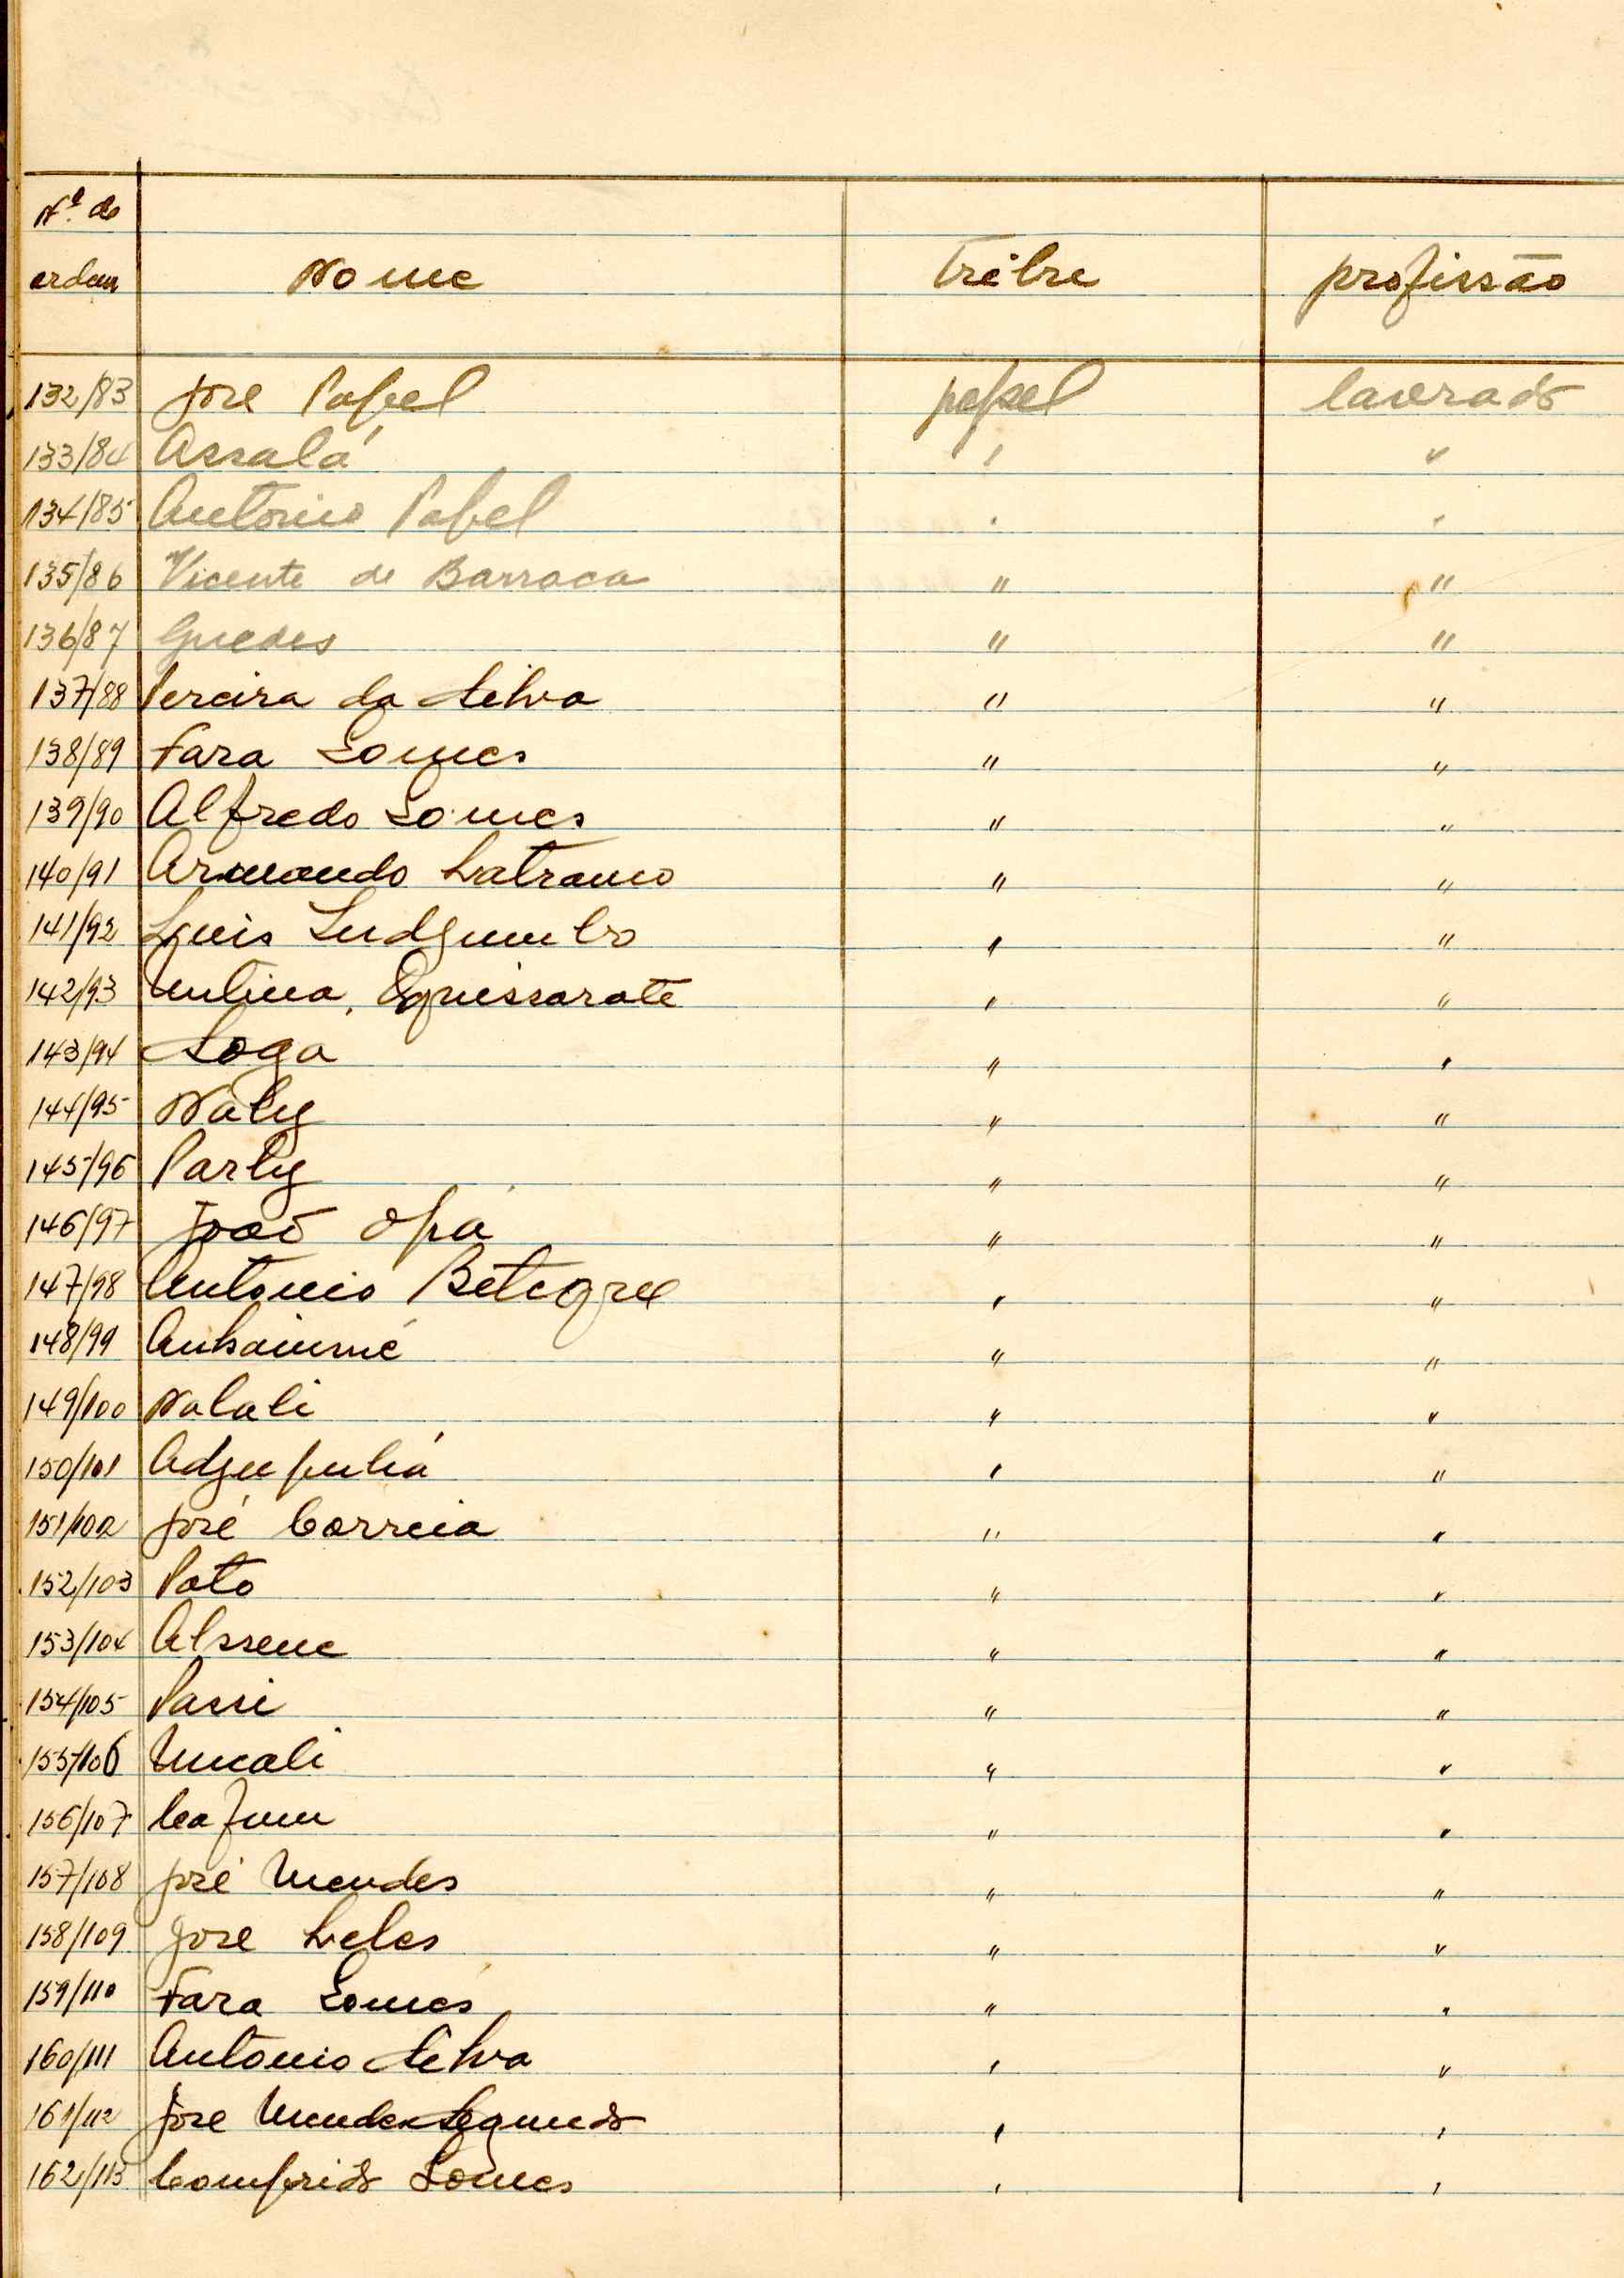 Nº de
ordem Nome Tribu profissão
132/83 José Papel pepel lavrador
133/84 Assalá " "
134/85 Antonio Papel " "
135/86 Vicente de Barraca " "
136/87 Guedes " "
137/88 Pereira da Silva " "
138/89 Fara Gomes " "
139/90 Alfredo Gomes " "
140/91 Armando " "
141/92 Luis " "
142/93 " "
143/94 Soga " "
144/95 Naby " "
145/96 Parby " "
146/97 João Opá " "
147/98 Antonio Betegre " "
148/99 " "
149/100 Nalali " "
150/101 " "
151/102 José Correia " "
152/103 Pato " "
153/104 Alssene " "
154/105 Passi " "
155/106 " "
156/107 Cafum " "
157/108 José Mendes " "
158/109 José Teles " "
159/110 Fara Gomes " "
160/111 Antonio Silva " "
161/112 José Mendes Segundo " "
162/113 Comprido Gomes " "